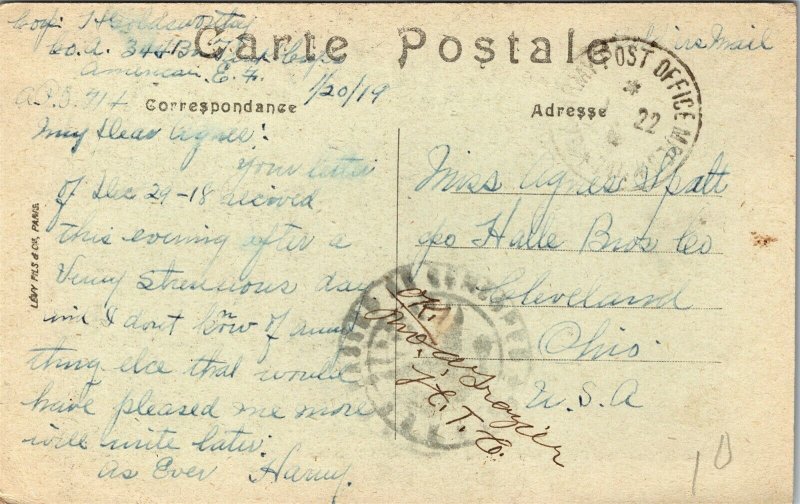 Corp. H Goldsworthy
Co. A. 344 Bn. Tank Corps
American E. F.
A.P.O. 714
1/20/19
Carte Postale
Correspondance
My Dear Agnes:
Your letter
of Dec 29-18 recived
this evening after a
Verry strenuous day
and I dont know of any
thing else that would
have pleased me more
will write later:
As Ever Harry.
LÉVY FILS & CIE, PARIS.
Mail
Adresse
POST OFFICE
22
Miss Agnes Spatt
c/o Halle Bros Co
Cleveland
Ohio
U.S.A
OK.
Frazier
10